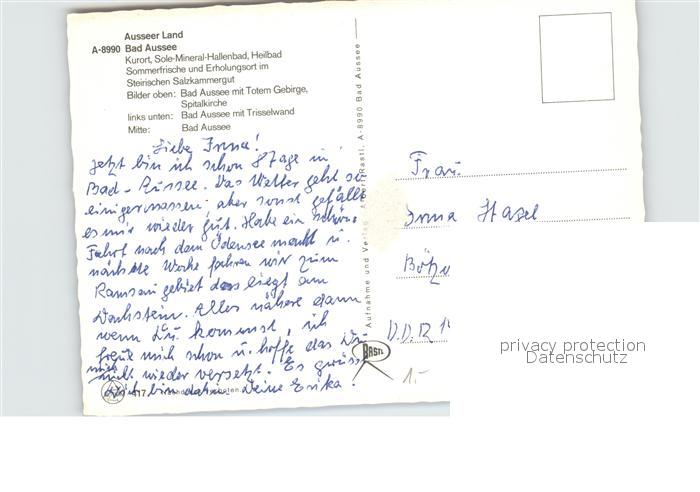 Ausseer Land
A-8990 Bad Aussee
Kurort, Sole-Mineral-Hallenbad, Heilbad
Sommerfrische und Erholungsort im
Steirischen Salzkammergut
Bilder oben: Bad Aussee mit Totem Gebirge,
Spitalkirche
links unten: Bad Aussee mit Trisselwand
Mitte: Bad Aussee
Liebe Irma!
Jetzt bin ich schon 8 Tage in
Bad-Aussee. Das Wetter geht so
einigermassen, aber sonst gefällt
es mir wieder gut. Habe ein schöne
Fahrt nach dem Ödensee macht u.
nächste Woche fahren wir zum
Ramsau gebiet das liegt am
Dachstein. Alles nähere dann
wenn Du kommst, ich
freue mich schon u. hoffe das Du
mich nicht wieder versetzt. Es grüsst
bin dahin Deine Erika.
Aufnahme und Verlag Rastl, A-8990 Bad Aussee
Frau
Irma Hasel
D.D.R
RASTL
1.-
privacy protection
Datenschutz